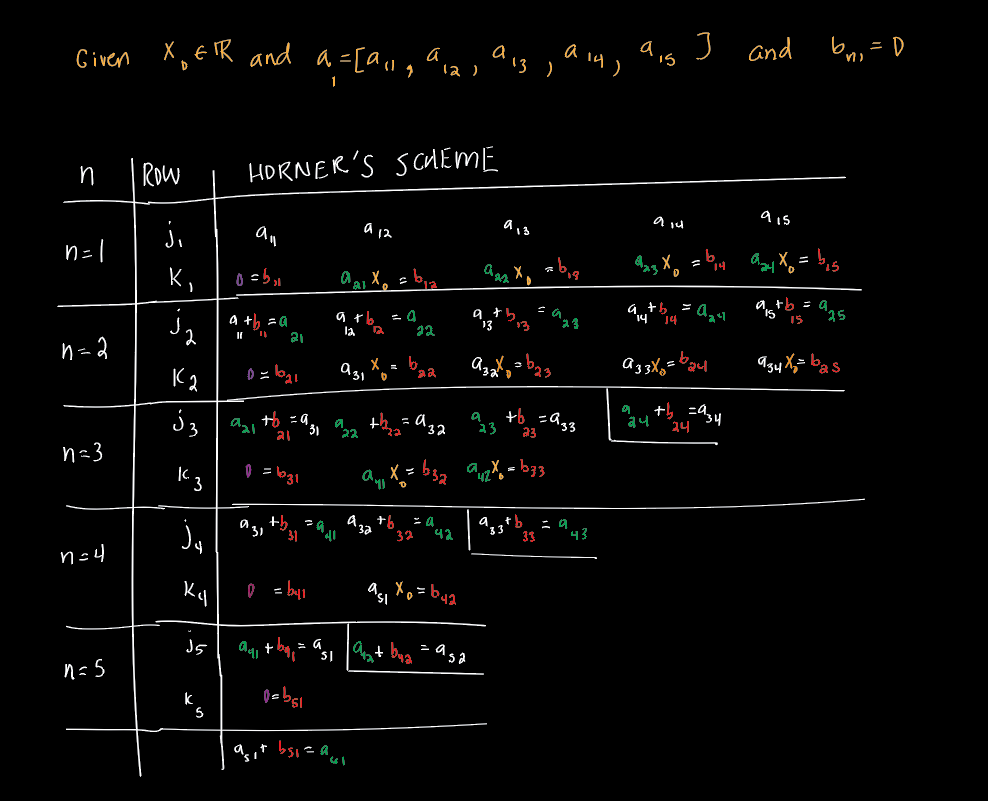 Given x₀ ∈ ℝ and a₁ = [a₁₁, a₁₂, a₁₃, a₁₄, a₁₅] and bₙ₁ = 0
n ROW HORNER'S SCHEME
n=1 j₁ a₁₁ a₁₂ a₁₃ a₁₄ a₁₅
K₁ 0 = b₁₁ a₂₁x₀ = b₁₂ a₂₂x₀ = b₁₃ a₂₃x₀ = b₁₄ a₂₄x₀ = b₁₅
n=2 j₂ a₁₁ + b₁₁ = a₂₁ a₁₂ + b₁₂ = a₂₂ a₁₃ + b₁₃ = a₂₃ a₁₄ + b₁₄ = a₂₄ a₁₅ + b₁₅ = a₂₅
K₂ 0 = b₂₁ a₃₁x₀ = b₂₂ a₃₂x₀ = b₂₃ a₃₃x₀ = b₂₄ a₃₄x₀ = b₂₅
n=3 j₃ a₂₁ + b₂₁ = a₃₁ a₂₂ + b₂₂ = a₃₂ a₂₃ + b₂₃ = a₃₃ a₂₄ + b₂₄ = a₃₄
K₃ 0 = b₃₁ a₄₁x₀ = b₃₂ a₄₂x₀ = b₃₃
n=4 j₄ a₃₁ + b₃₁ = a₄₁ a₃₂ + b₃₂ = a₄₂ a₃₃ + b₃₃ = a₄₃
K₄ 0 = b₄₁ a₅₁x₀ = b₄₂
n=5 j₅ a₄₁ + b₄₁ = a₅₁ a₄₂ + b₄₂ = a₅₂
K₅ 0 = b₅₁
a₅₁ + b₅₁ = a₆₁